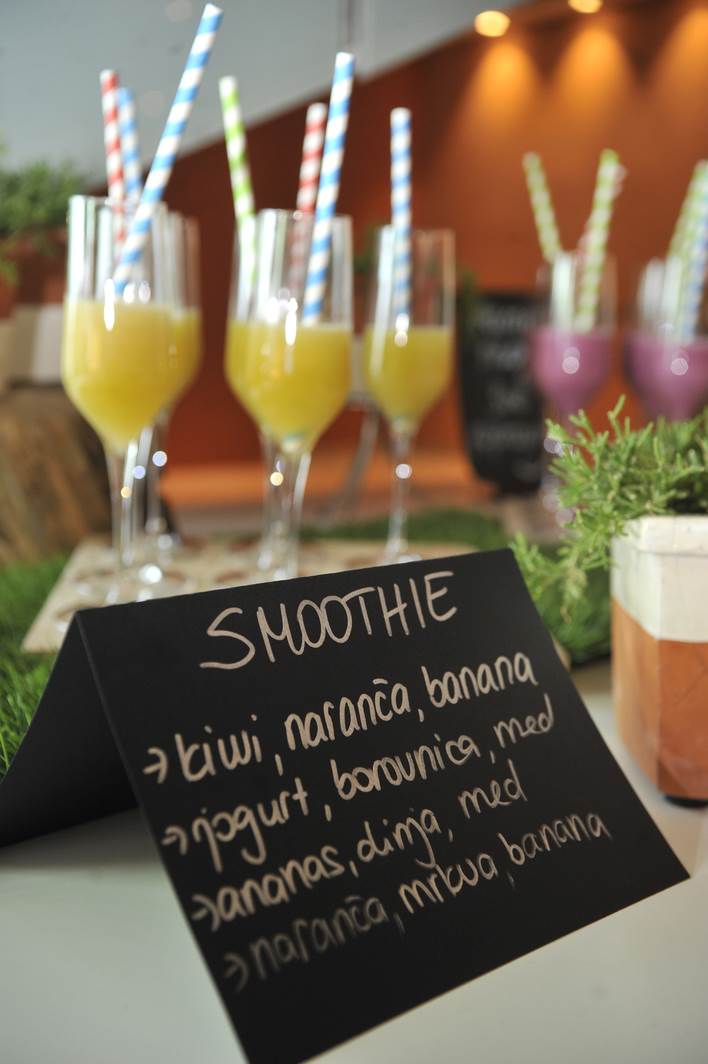 SMOOTHIE
→ kiwi, naranča, banana
→ jogurt, borovnica, med
→ ananas, dinja, med
→ naranča, mrkva, banana